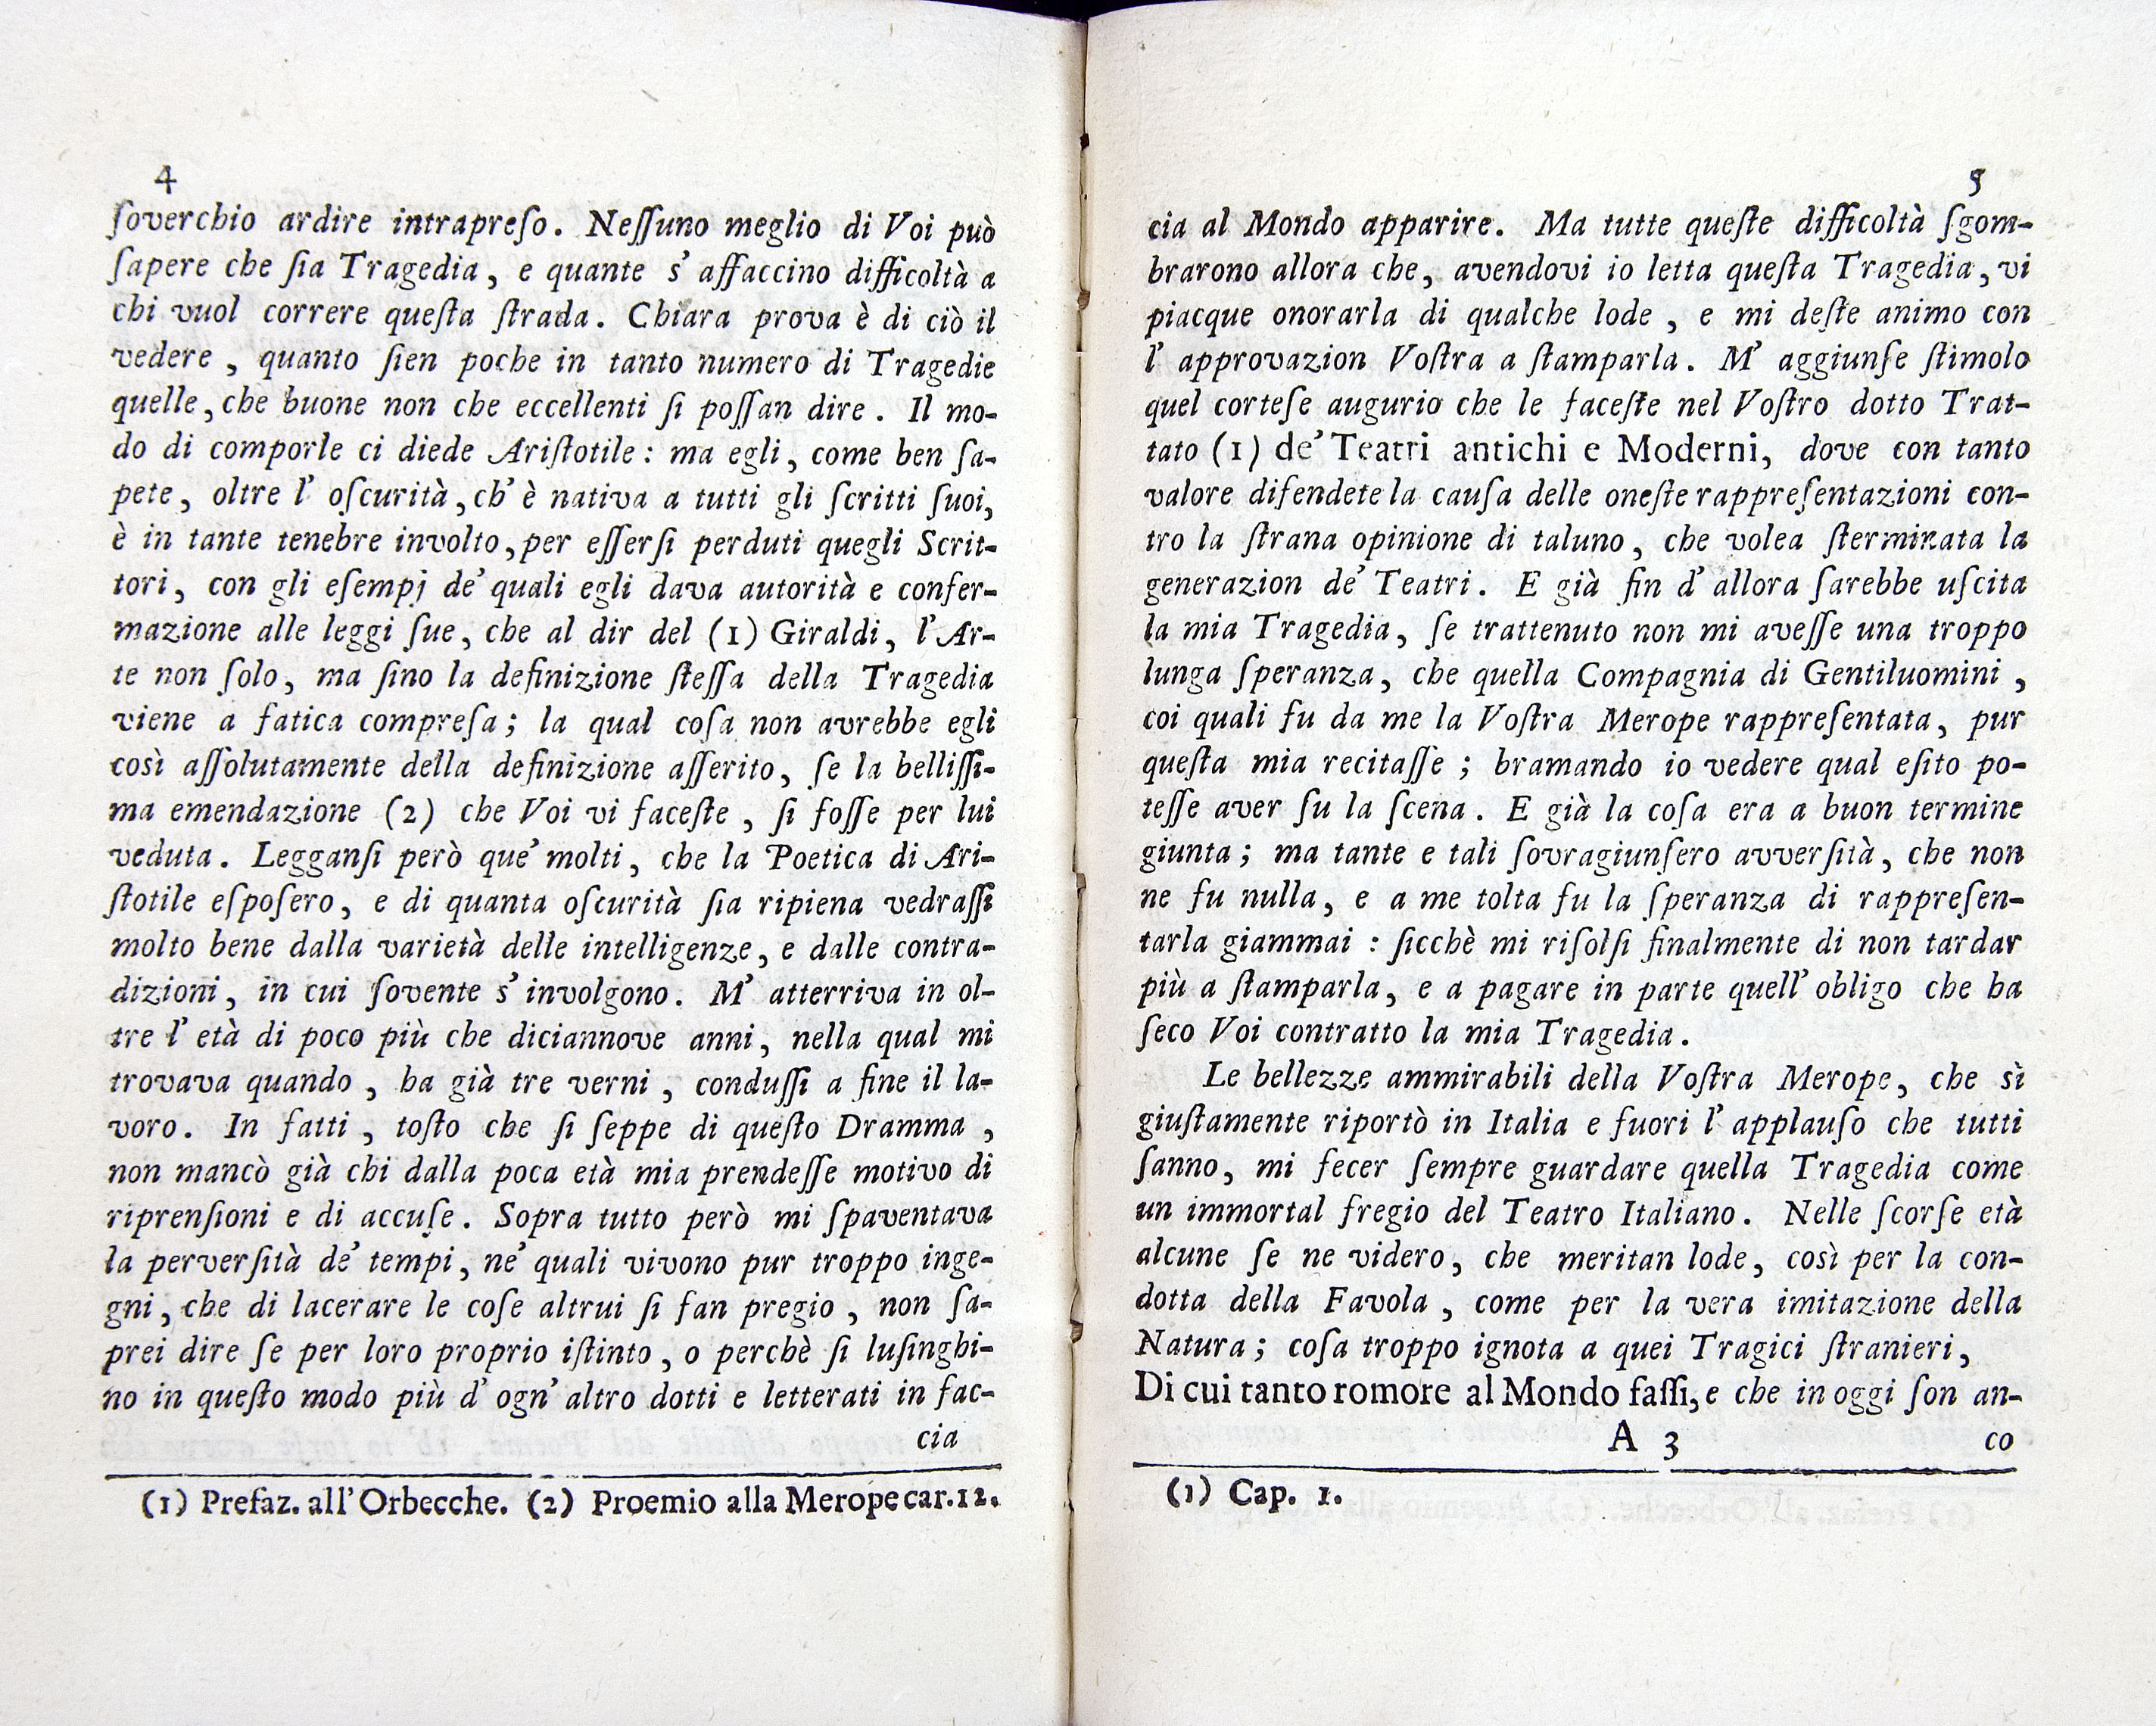 4
ſoverchio ardire intrapreſo. Neſſuno meglio di Voi può
ſapere che ſia Tragedia, e quante s' affaccino difficoltà a
chi vuol correre queſta ſtrada. Chiara prova è di ciò il
vedere, quanto ſien poche in tanto numero di Tragedie
quelle, che buone non che eccellenti ſi poſſan dire. Il mo-
do di comporle ci diede Ariſtotile: ma egli, come ben ſa-
pete, oltre l' oſcurità, ch' è nativa a tutti gli ſcritti ſuoi,
è in tante tenebre involto, per eſſerſi perduti quegli Scrit-
tori, con gli eſempj de' quali egli dava autorità e confer-
mazione alle leggi ſue, che al dir del (1) Giraldi, l' Ar-
te non ſolo, ma ſino la definizione ſteſſa della Tragedia
viene a fatica compreſa; la qual coſa non avrebbe egli
così aſſolutamente della definizione aſſerito, ſe la belliſſi-
ma emendazione (2) che Voi vi faceſte, ſi foſſe per lui
veduta. Legganſi però que' molti, che la Poetica di Ari-
ſtotile eſpoſero, e di quanta oſcurità ſia ripiena vedraſſi
molto bene dalla varietà delle intelligenze, e dalle contra-
dizioni, in cui ſovente s' involgono. M' atterriva in ol-
tre l' età di poco più che diciannove anni, nella qual mi
trovava quando, ha già tre verni, conduſſi a fine il la-
voro. In fatti, toſto che ſi ſeppe di queſto Dramma,
non mancò già chi dalla poca età mia prendeſſe motivo di
riprenſioni e di accuſe. Sopra tutto però mi ſpaventava
la perverſità de' tempi, ne' quali vivono pur troppo inge-
gni, che di lacerare le coſe altrui ſi fan pregio, non ſa-
prei dire ſe per loro proprio iſtinto, o perchè ſi luſinghi-
no in queſto modo più d' ogn' altro dotti e letterati in fac-
cia
(1) Prefaz. all' Orbecche. (2) Proemio alla Merope car.12.
5
cia al Mondo apparire. Ma tutte queſte difficoltà ſgom-
brarono allora che, avendovi io letta queſta Tragedia, vi
piacque onorarla di qualche lode, e mi deſte animo con
l' approvazion Voſtra a ſtamparla. M' aggiunſe ſtimolo
quel corteſe augurio che le faceſte nel Voſtro dotto Trat-
tato (1) de' Teatri antichi e Moderni, dove con tanto
valore difendete la cauſa delle oneſte rappreſentazioni con-
tro la ſtrana opinione di taluno, che volea ſterminata la
generazion de' Teatri. E già fin d' allora ſarebbe uſcita
la mia Tragedia, ſe trattenuto non mi aveſſe una troppo
lunga ſperanza, che quella Compagnia di Gentiluomini,
coi quali fu da me la Voſtra Merope rappreſentata, pur
queſta mia recitaſſe; bramando io vedere qual eſito po-
teſſe aver ſu la ſcena. E già la coſa era a buon termine
giunta; ma tante e tali ſovragiunſero avverſità, che non
ne fu nulla, e a me tolta fu la ſperanza di rappreſen-
tarla giammai: ſicchè mi riſolſi finalmente di non tardar
più a ſtamparla, e a pagare in parte quell' obligo che ha
ſeco Voi contratto la mia Tragedia.
Le bellezze ammirabili della Voſtra Merope, che sì
giuſtamente riportò in Italia e fuori l' applauſo che tutti
ſanno, mi fecer ſempre guardare quella Tragedia come
un immortal fregio del Teatro Italiano. Nelle ſcorſe età
alcune ſe ne videro, che meritan lode, così per la con-
dotta della Favola, come per la vera imitazione della
Natura; coſa troppo ignota a quei Tragici ſtranieri,
Di cui tanto romore al Mondo faſſi, e che in oggi ſon an-
A 3 co
(1) Cap. 1.